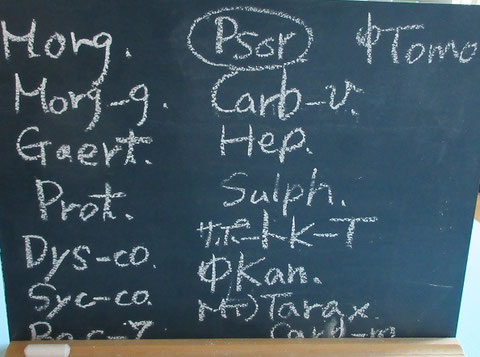 Morg.
Morg-g.
Gaert.
Prot.
Dys-co.
Syc-co.
Bac-7
Psor
Carb-v.
Hep.
Sulph.
サポートK-T
ΦKan.
MT)Tarax.
Card-m
ΦTomo